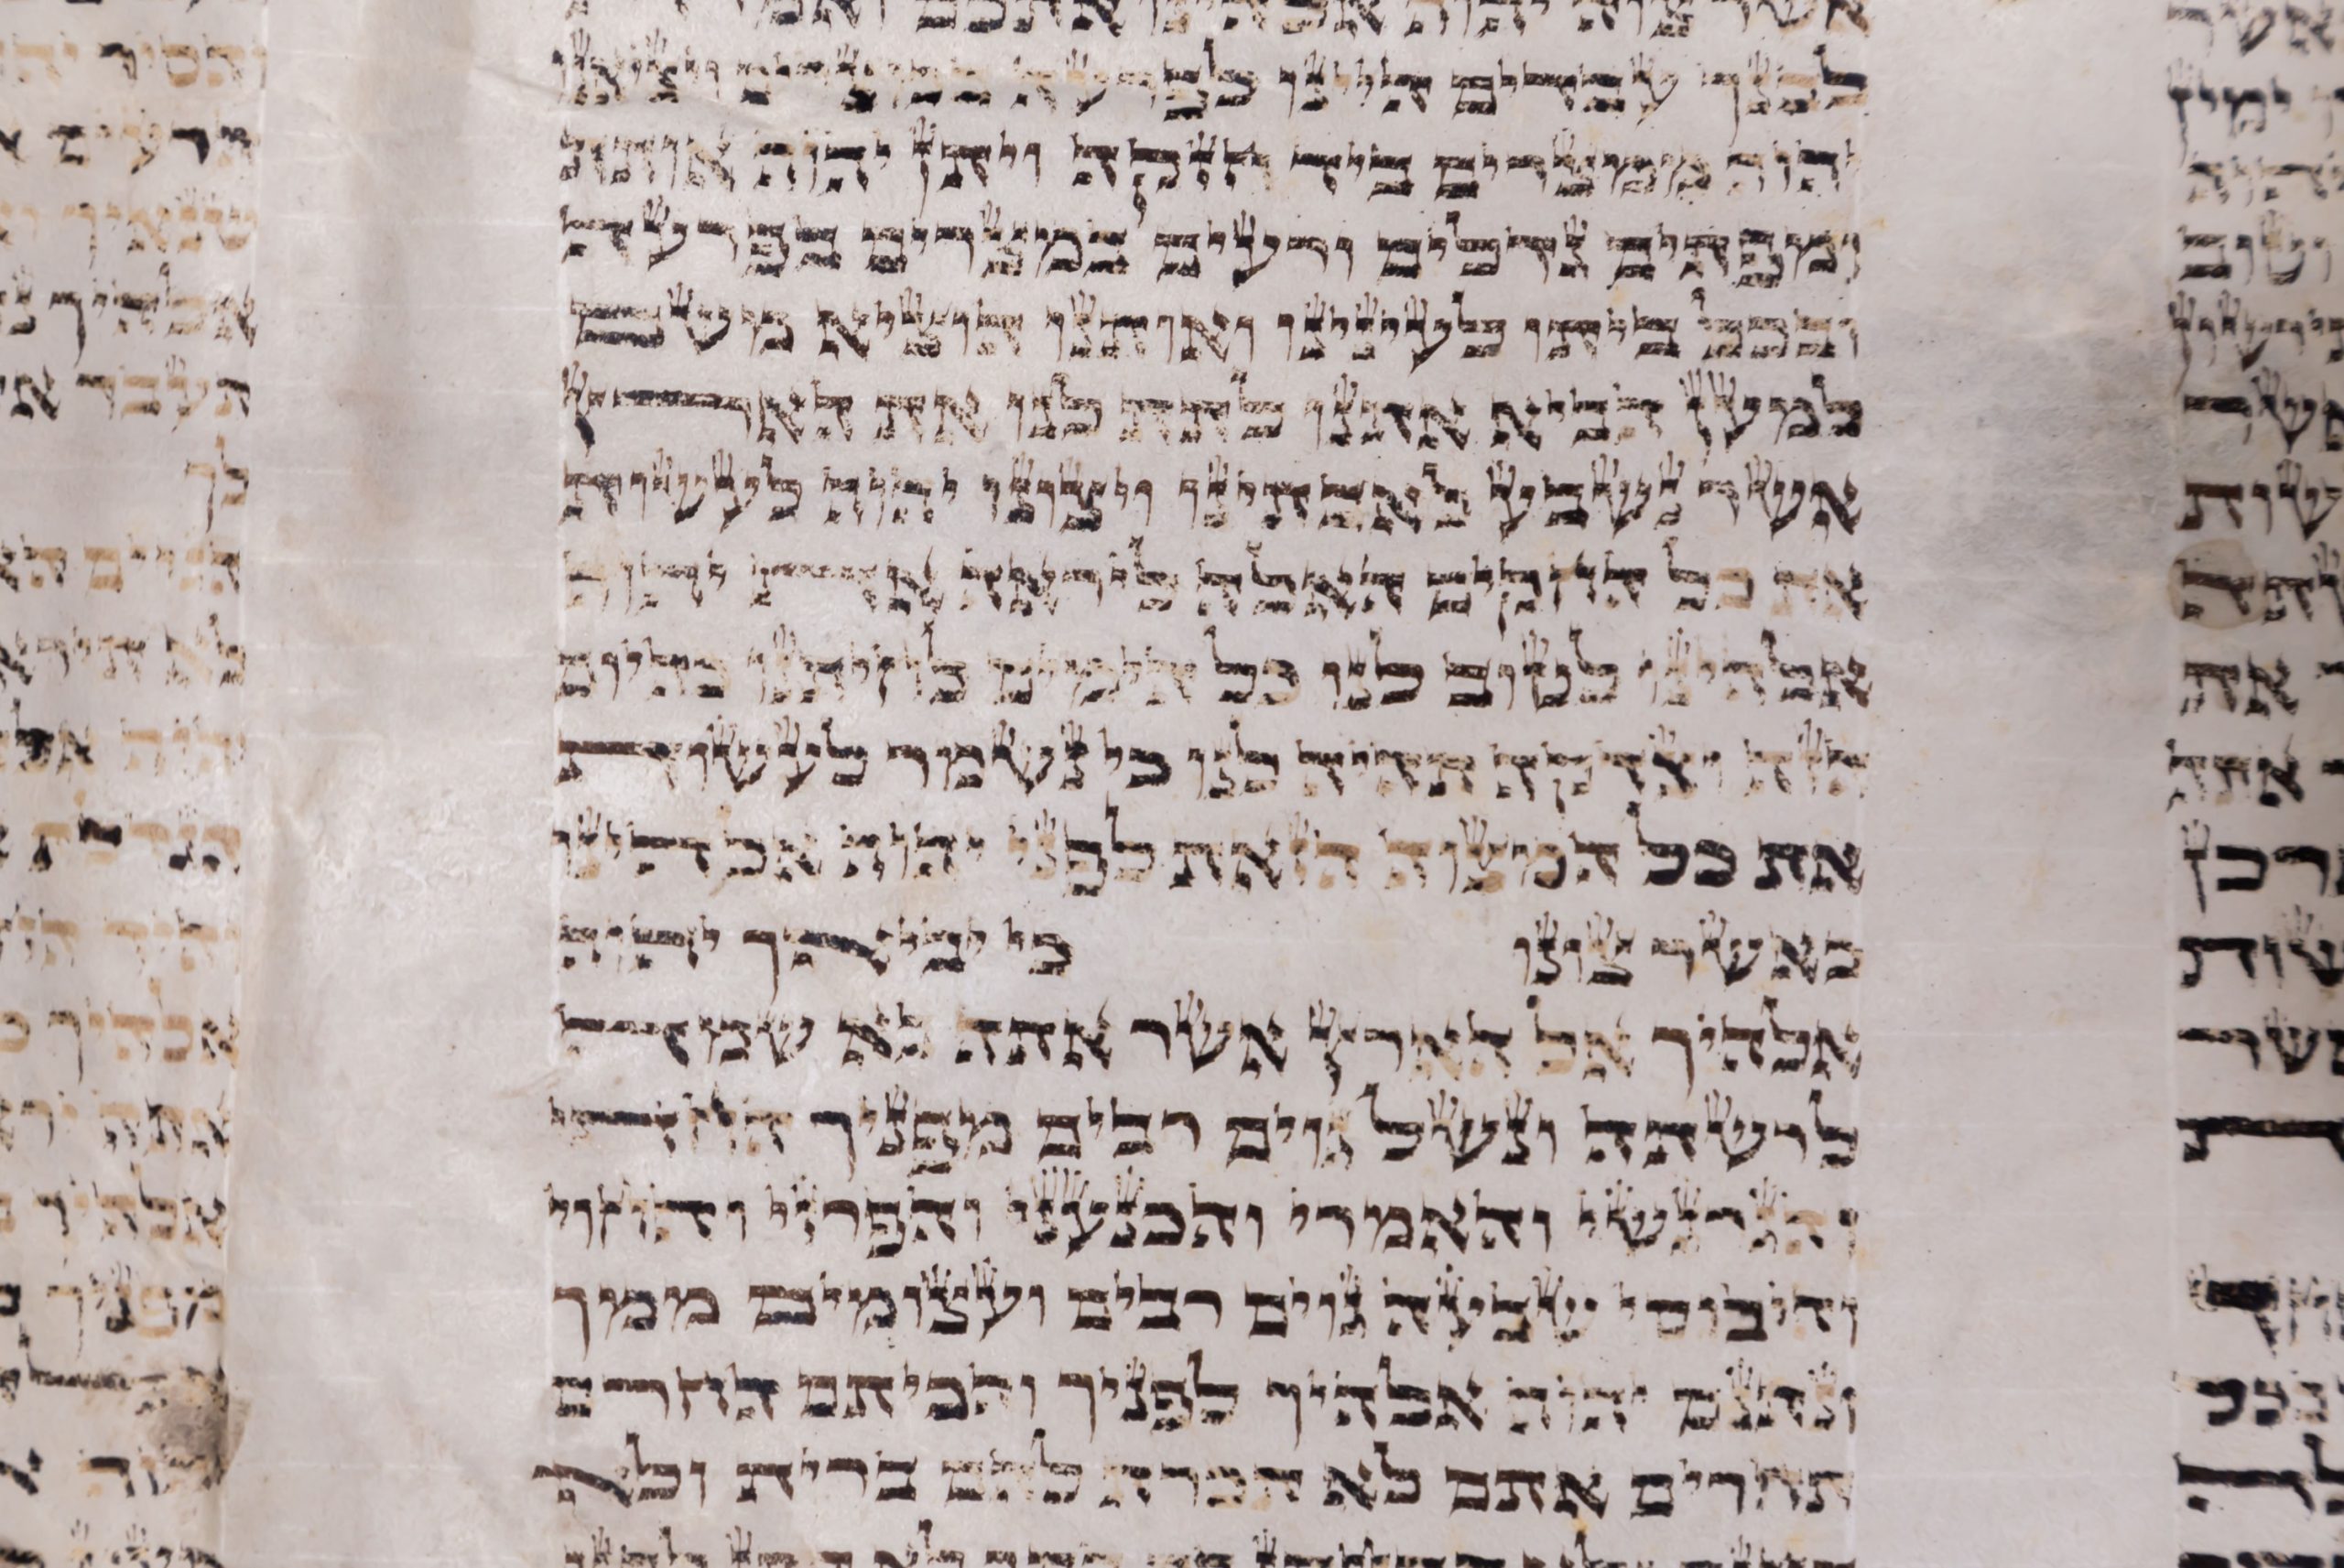 אשר
ימין
וטוב
אשר
עשות
את
עשות
לבנך עבדים היינו לפרעה במצרים ויציאנו
יהוה ממצרים ביד חזקה ויתן יהוה אותת
ומפתים גדלים ורעים במצרים בפרעה
ובכל ביתו לעינינו ואותנו הוציא משם
למען הביא אתנו לתת לנו את הארץ
אשר נשבע לאבתינו ויצונו יהוה לעשות
את כל החקים האלה ליראה את יהוה
אלהינו לטוב לנו כל הימים לחיתנו כהיום
הזה וצדקה תהיה לנו כי נשמר לעשות
את כל המצוה הזאת לפני יהוה אלהינו
כאשר צונו כי יביאך יהוה
אלהיך אל הארץ אשר אתה בא שמה
לרשתה ונשל גוים רבים מפניך החתי
והגרגשי והאמרי והכנעני והפרזי והחוי
והיבוסי שבעה גוים רבים ועצומים ממך
ונתנם יהוה אלהיך לפניך והכיתם החרם
תחרים אתם לא תכרת להם ברית ולא
והסיר
הרעים
שנאיך
אלהיך
לך
הגוים
לא תירא
יהוה
הגדלת
אלהיך
אתה
אלהיך
מפניך